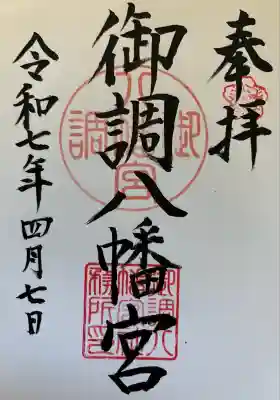 奉拝
御調八幡宮
令和七年四月七日